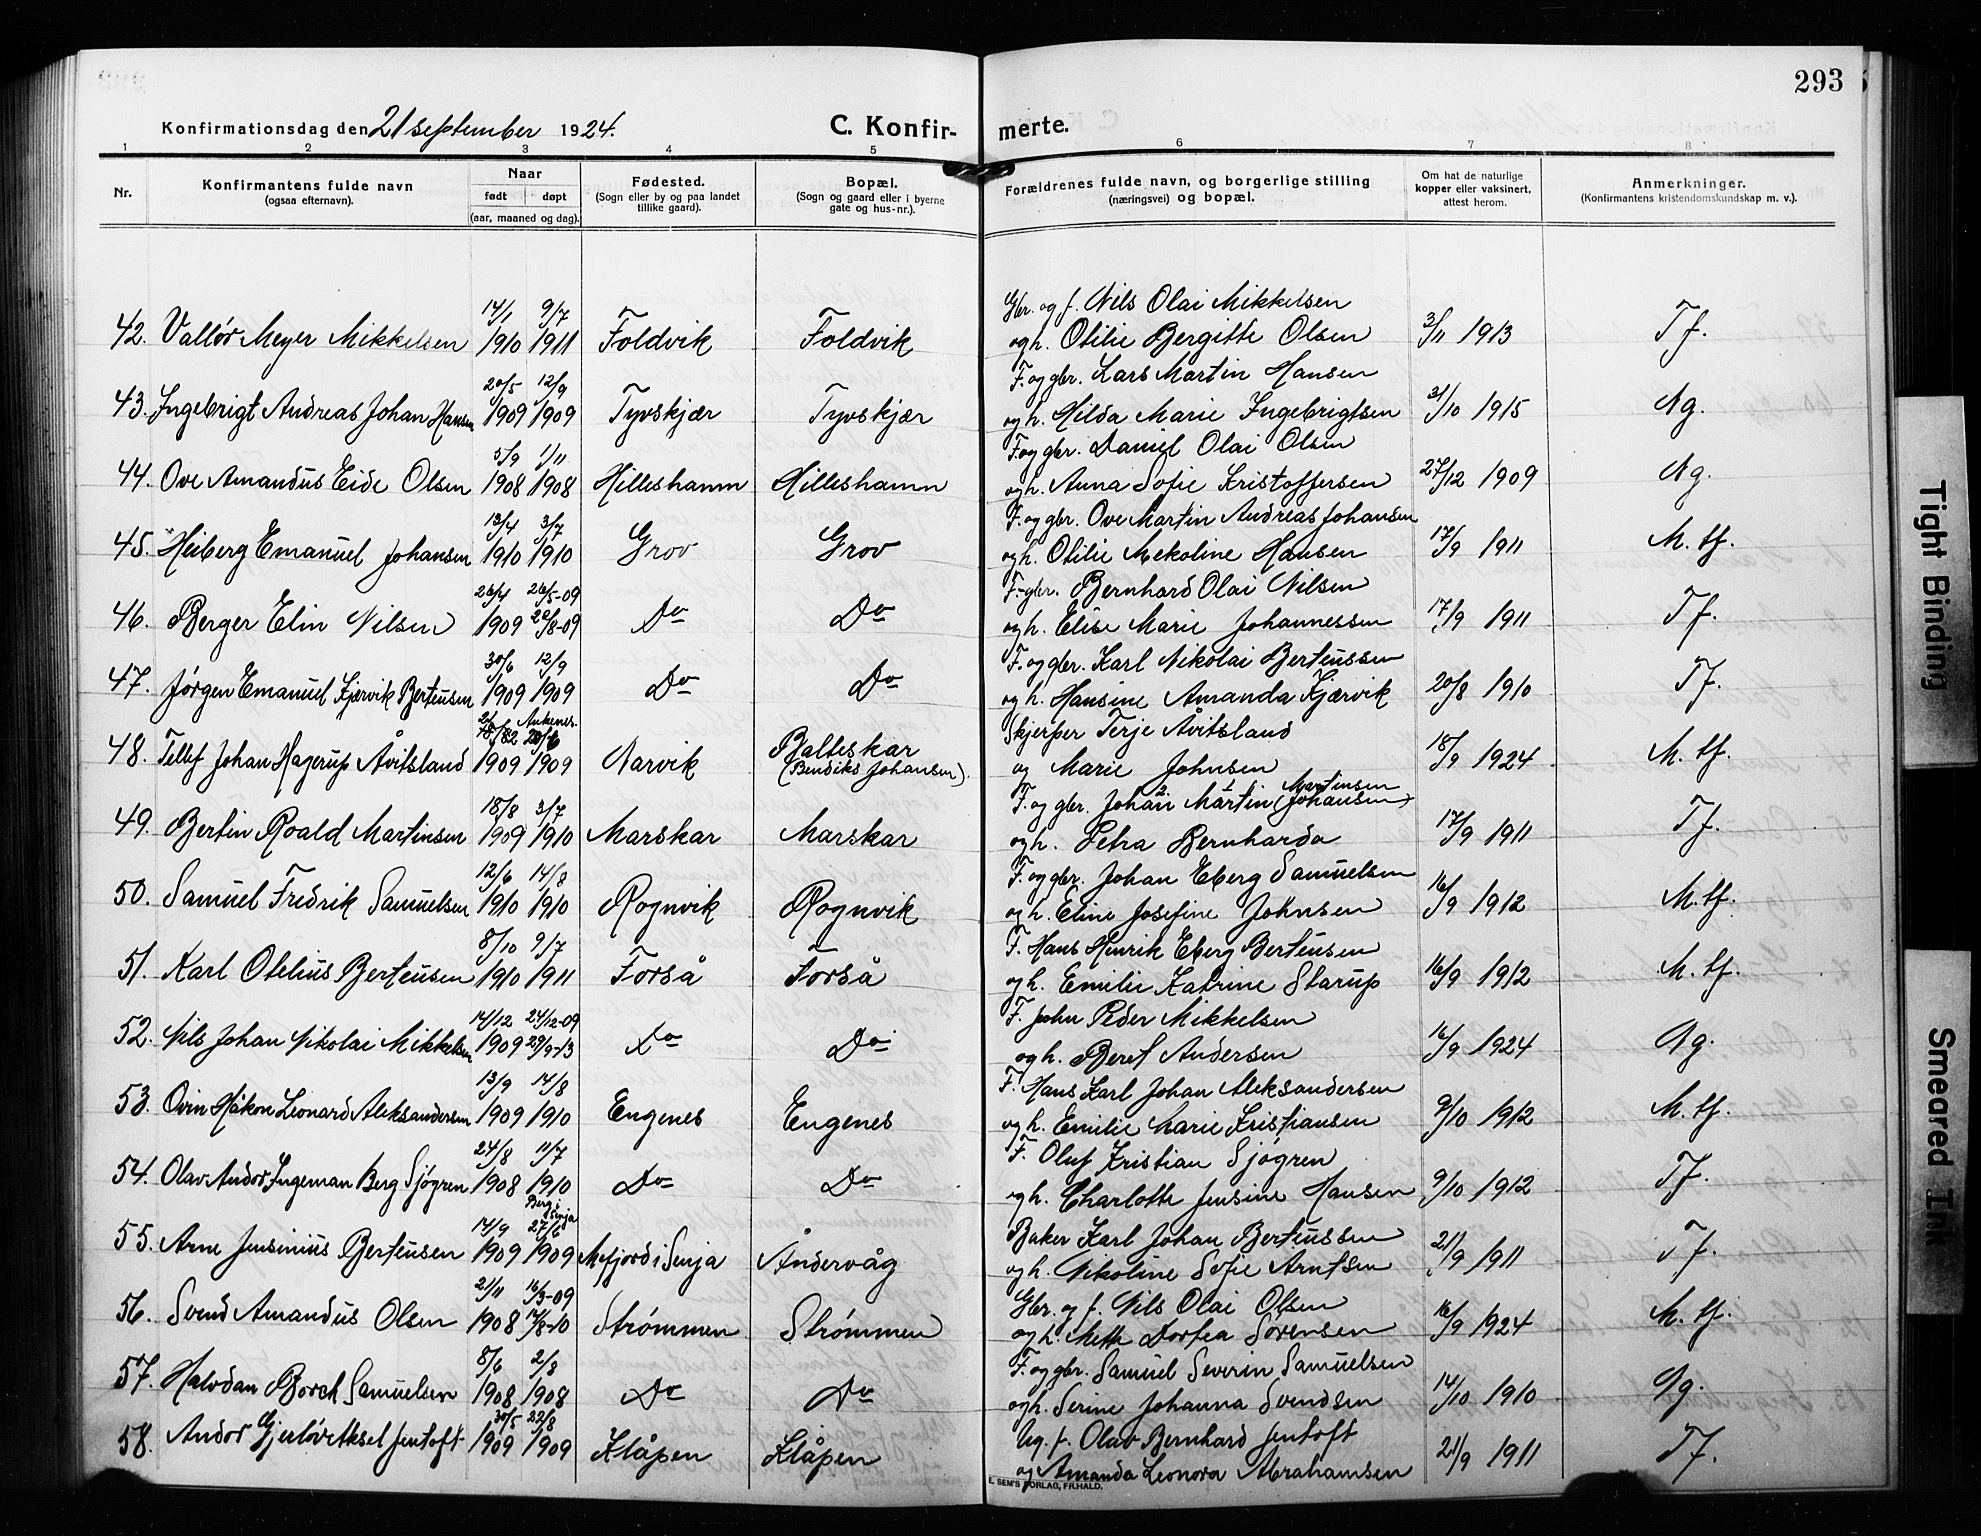 293
Konfirmationsdag den 21 september 1924.
C. Konfirmerte.
1 2 3 4 5 6 7 8
Nr.
Konfirmantens fulde navn
(ogsaa efternavn).
Naar
født døpt
(aar, maaned og dag).
Fødested.
(Sogn eller by og paa landet
tillike gaard).
Bopæl.
(Sogn og gaard eller i byerne
gate og hus-nr.).
Forældrenes fulde navn, og borgerlige stilling
(næringsvei) og bopæl.
Om hat de naturlige
kopper eller vaksinert,
attest herom.
Anmerkninger.
(Konfirmantens kristendomskundskap m. v.).
14/1 9/7 Gbr. og f. Nils Olai Mikkelsen
42. Valdør Meyer Mikkelsen 1910 1911 Foldvik Foldvik og h. Otilie Bergitte Olsen 3/11 1913 Tf.
20/5 12/9 F. og gbr. Lars Martin Hansen
43. Ingebrigt Andreas Johan Hansen 1909 1909 Tyvskjær Tyvskjær og h. Hilda Marie Ingebrigtsen 31/10 1915 Ng.
5/9 1/11 F. og gbr. Daniel Olai Olsen
44. Ove Amandus Eide Olsen 1908 1908 Hilleshamn Hilleshamn og h. Anna Sofie Kristoffersen 27/12 1909 Ng.
13/4 3/7 F. og gbr. Ove Martin Andreas Johansen
45. Heiberg Emanuel Johansen 1910 1910 Grov Grov og h. Otilie Mekoline Hansen 17/9 1911 M. tf.
26/4 26/5-09 F.-gbr. Bernhard Olai Nilsen
46. Berger Elin Nilsen 1909 22/8-09 Do Do og h. Elise Marie Johannessen 17/9 1911 Tf.
30/6 12/9 F. og gbr. Karl Nikolai Berteussen
47. Jørgen Emanuel Kjærvik Berteusen 1909 1909 Do Do og h. Hansine Amanda Kjærvik 20/8 1910 Tf.
Ankenes. Skjerper Terje Åvitsland
48. Tellef Johan Hagerup Åvitsland 1909 1909 Narvik Balteskar (Bendiks Johansen). og Marie Johnsen 18/9 1924 M. tf.
18/8 3/7 F. og gbr. Johan Martin (Johansen) Martinsen
49. Bertin Roald Martinsen 1909 1910 Marskar Marskar og h. Petra Bernharda 17/9 1911 Tf.
12/6 14/8 F. og gbr. Johan Eberg Samuelsen
50. Samuel Fredrik Samuelsen 1910 1910 Rognvik Rognvik og h. Eline Josefine Johnsen 16/9 1912 M. tf.
8/10 9/7 F. Hans Henrik Eberg Berteusen
51. Karl Otelius Berteusen 1910 1911 Forså Forså og h. Emilie Katrine Starup 16/9 1912 M. tf.
14/12 24/12-09 F. John Peder Mikkelsen
52. Nils Johan Nikolai Mikkelsen 1909 29/9-13 Do Do og h. Beret Andersen 16/9 1924 Ng.
13/9 14/8 F. Hans Karl Johan Aleksandersen
53. Ovin Håkon Leonard Aleksandersen 1909 1910 Engenes Engenes og h. Emilie Marie Kristiansen 9/10 1912 M. tf.
24/8 11/7 F. Oluf Kristian Sjøgren
54. Olav Andor Ingeman Berg Sjögren 1908 1910 Do Do og h. Charlotte Jensine Hansen 9/10 1912 Tf.
14/9 Berg i Senja 27/6 Baker Karl Johan Berteussen
55. Arne Jensinius Berteusen 1909 1909 Mefjord i Senja Åndervåg og h. Nikoline Sofie Arntsen 21/9 1911 Tf.
21/11 16/3-09 Gbr. og f. Nils Olai Olsen
56. Svend Amandus Olsen 1908 14/8-10 Strømmen Strømmen og h. Mette Dortea Sørensen 16/9 1924 M. tf.
8/6 2/8 F. og gbr. Samuel Severin Samuelsen
57. Halvdan Borch Samuelsen 1908 1908 Do Do og h. Serine Johanna Svendsen 14/10 1910 Ng.
30/5 22/8 Ug. f. Olav Bernhard Jentoft
58. Andor Gjerløv Aksel Jentoft 1909 1909 Klåpen Klåpen og Amanda Leonora Abrahamsen 21/9 1911 Tf.
E. SEM'S FORLAG, FR.HALD.
Tight Binding
Smeared Ink